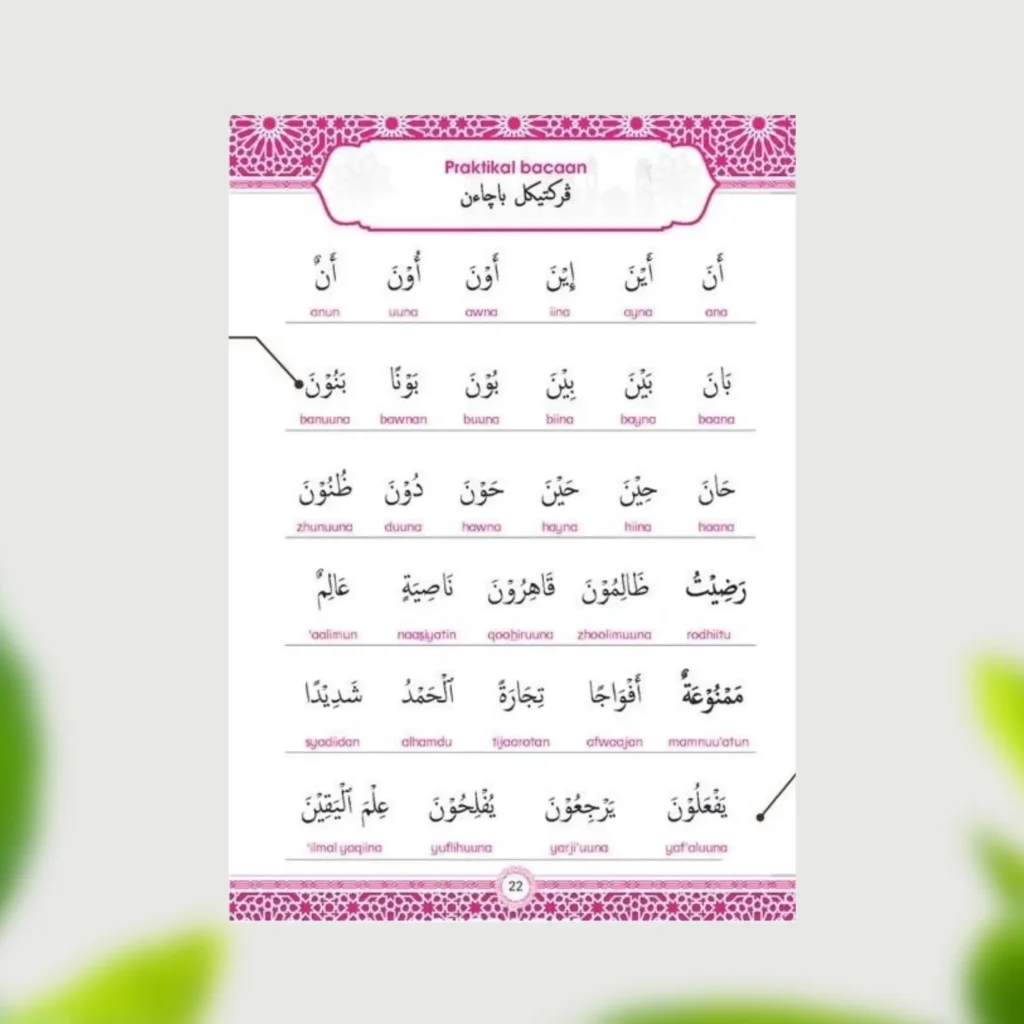 Praktikal bacaan
ڤرکتيکل باچاءن
أَنَ أَيْنَ إِيْنَ أَوْنَ أُوْنَ أَنٌ
anun uuna awna iina ayna ana
بَانَ بَيْنَ بِيْنَ بُوْنَ بَوْنًا بَنُوْنَ
banuuna bawnan buuna biina bayna baana
حَانَ حِيْنَ حَيْنَ حَوْنَ دُوْنَ ظُنُوْنَ
zhunuuna duuna hawna hayna hiina haana
رَضِيْتُ ظَالِمُوْنَ قَاهِرُوْنَ نَاصِيَةٍ عَالِمٌ
'aalimun naasiyatin qoohiruuna zhoolimuuna rodhiitu
مَمْنُوْعَةٌ أَفْوَاجًا تِجَارَةً ٱلْحَمْدُ شَدِيْدًا
syadiidan alhamdu tijaaratan afwaajan mamnuu'atun
يَفْعَلُوْنَ يَرْجِعُوْنَ يُفْلِحُوْنَ عِلْمَ ٱلْيَقِيْنَ
'ilmal yaqiina yuflihuuna yarji'uuna yaf'aluuna
22